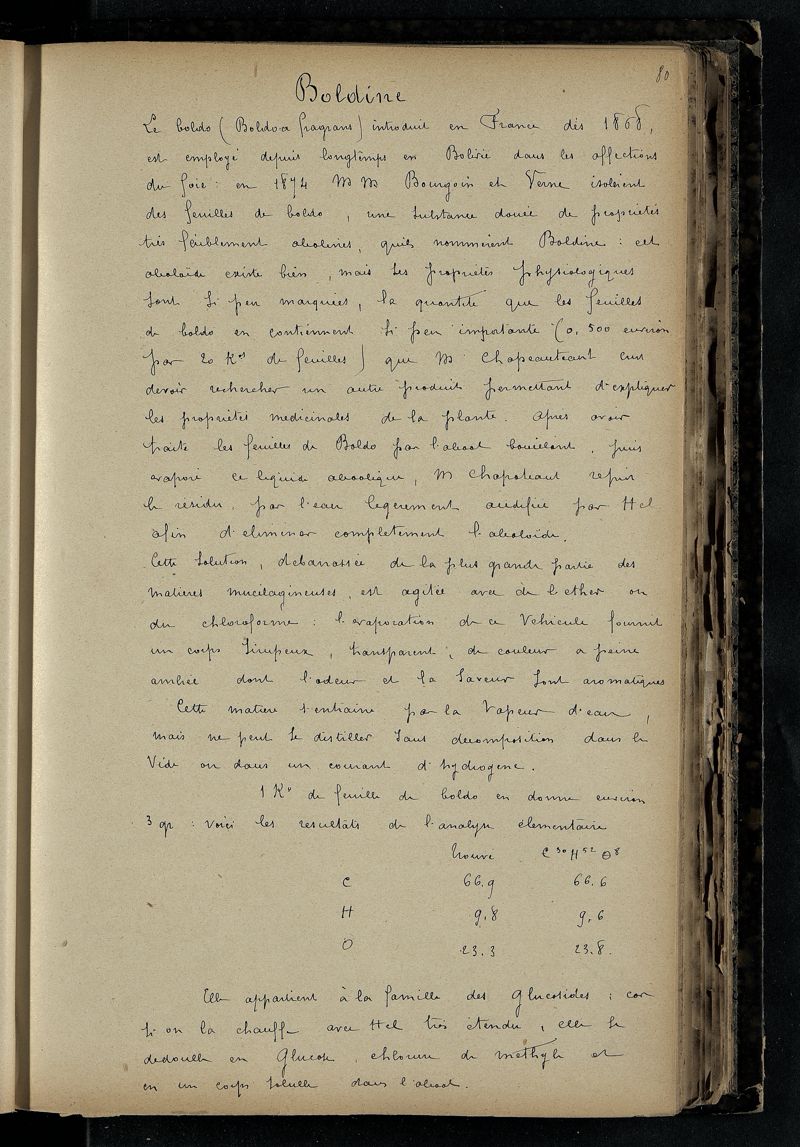 80
Boldine
Le boldo (Boldoa fragrans) introduit en France dès 1868,
est employé depuis longtemps en Bolivie dans les affections
du foie : en 1874 MM Bourgoin et Verne isolèrent
des feuilles de boldo, une substance douée de propriétés
très faiblement alcalines, qu'ils nommèrent Boldine : cet
alcaloïde existe bien, mais ses propriétés physiologiques
sont si peu marquées, la quantité que les feuilles
de boldo en contiennent si peu importante (0,500 environ
par 20 Kos de feuilles) que M. Chapeauteaut crut
devoir rechercher un autre produit permettant d'expliquer
les propriétés médicinales de la plante. Après avoir
traité les feuilles de Boldo par l'alcool bouillant, puis
évaporé ce liquide alcoolique, M Chapoteaut reprit
le résidu, par l'eau légèrement acidifiée par Hcl
afin d'éliminer complètement l'alcaloïde.
Cette solution, débarrassée de la plus grande partie des
matières mucilagineuses, est agitée avec de l'ether ou
du chloroforme : l'évaporation de ce Véhicule fournit
un corps sirupeux, transparent, de couleur à peine
ambrée dont l'odeur et la saveur sont aromatiques
Cette matière s'entraine par la Vapeur d'eau,
mais ne peut se distiller sans décomposition dans le
Vide ou dans un courant d'hydrogène.
1 Ko de feuille de boldo en donne environ
3 gr : voici les résultats de l'analyse élémentaire
trouvé C30H52O8
C 66.9 66.6
H 9,8 9,6
O 23.3 23.8.
Elle appartient à la famille des glucosides ; car
si on la chauffe avec Hcl très étendu, elle se
dédouble en Glucose, chlorure de méthyle et
en un corps soluble dans l'alcool.